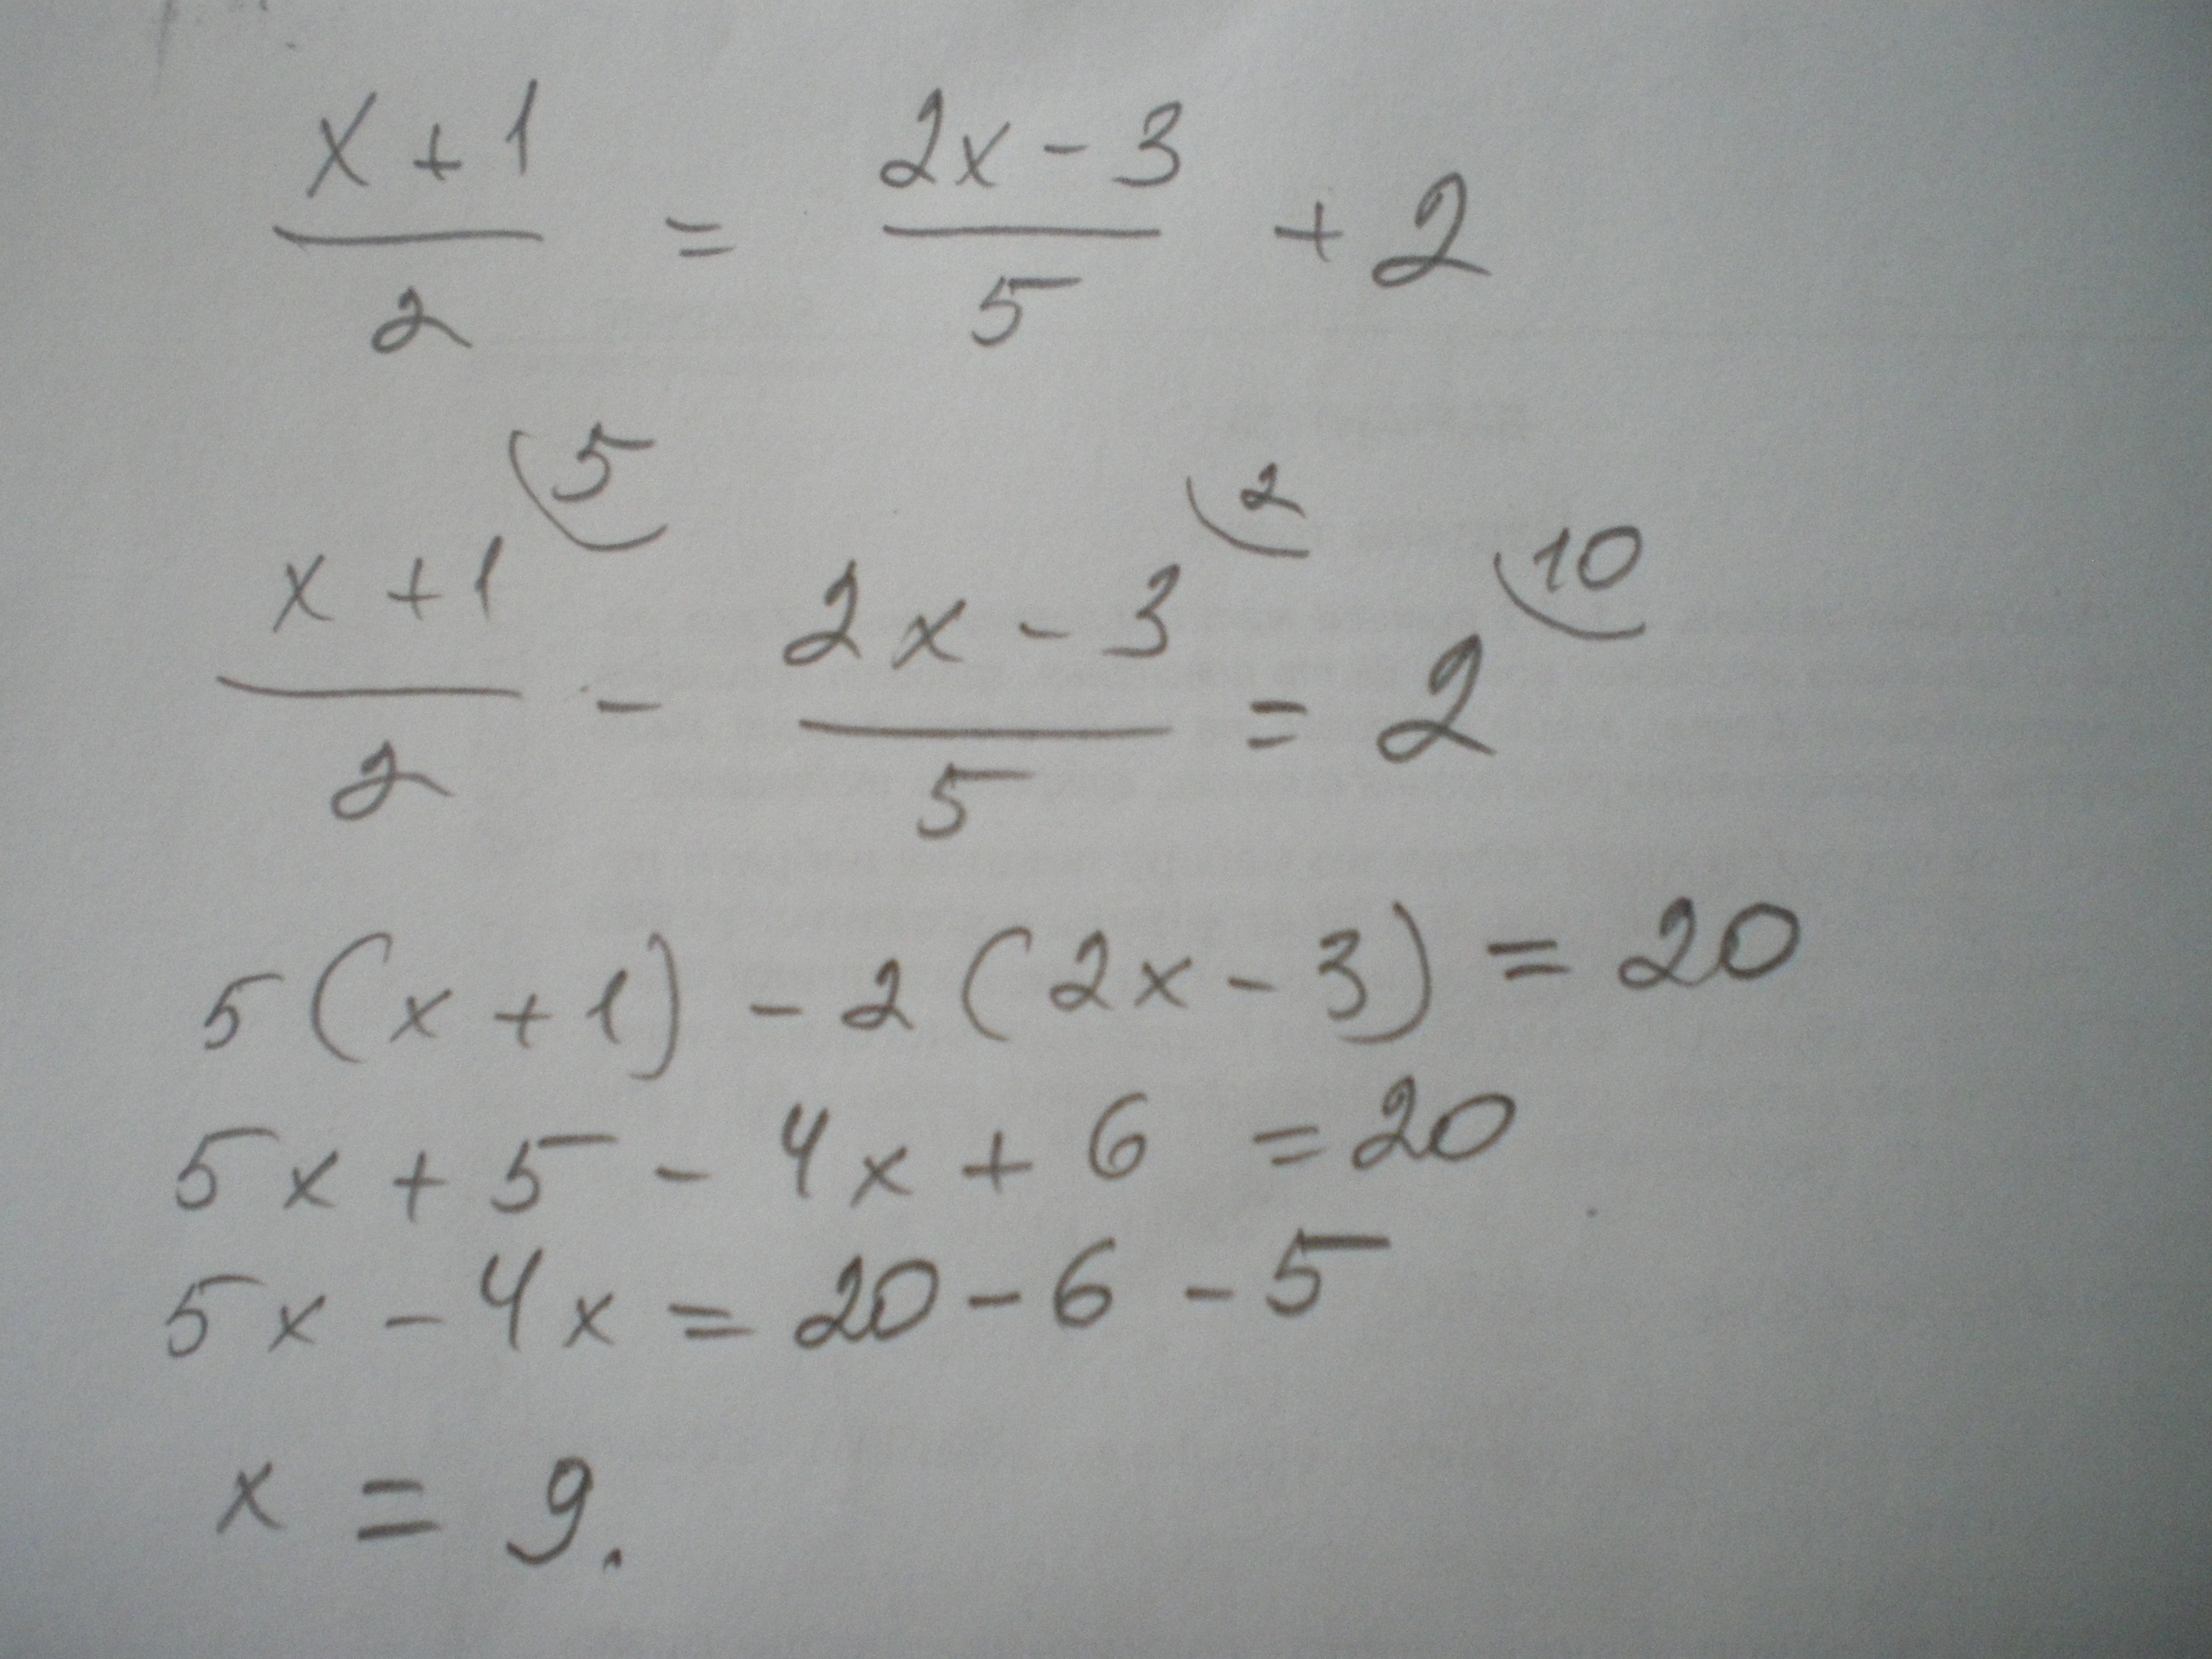 x + 1 / 2 = 2x - 3 / 5 + 2
x + 1 / 2 ⁵ - 2x - 3 / 5 ² = 2 ¹⁰
5(x + 1) - 2(2x - 3) = 20
5x + 5 - 4x + 6 = 20
5x - 4x = 20 - 6 - 5
x = 9.